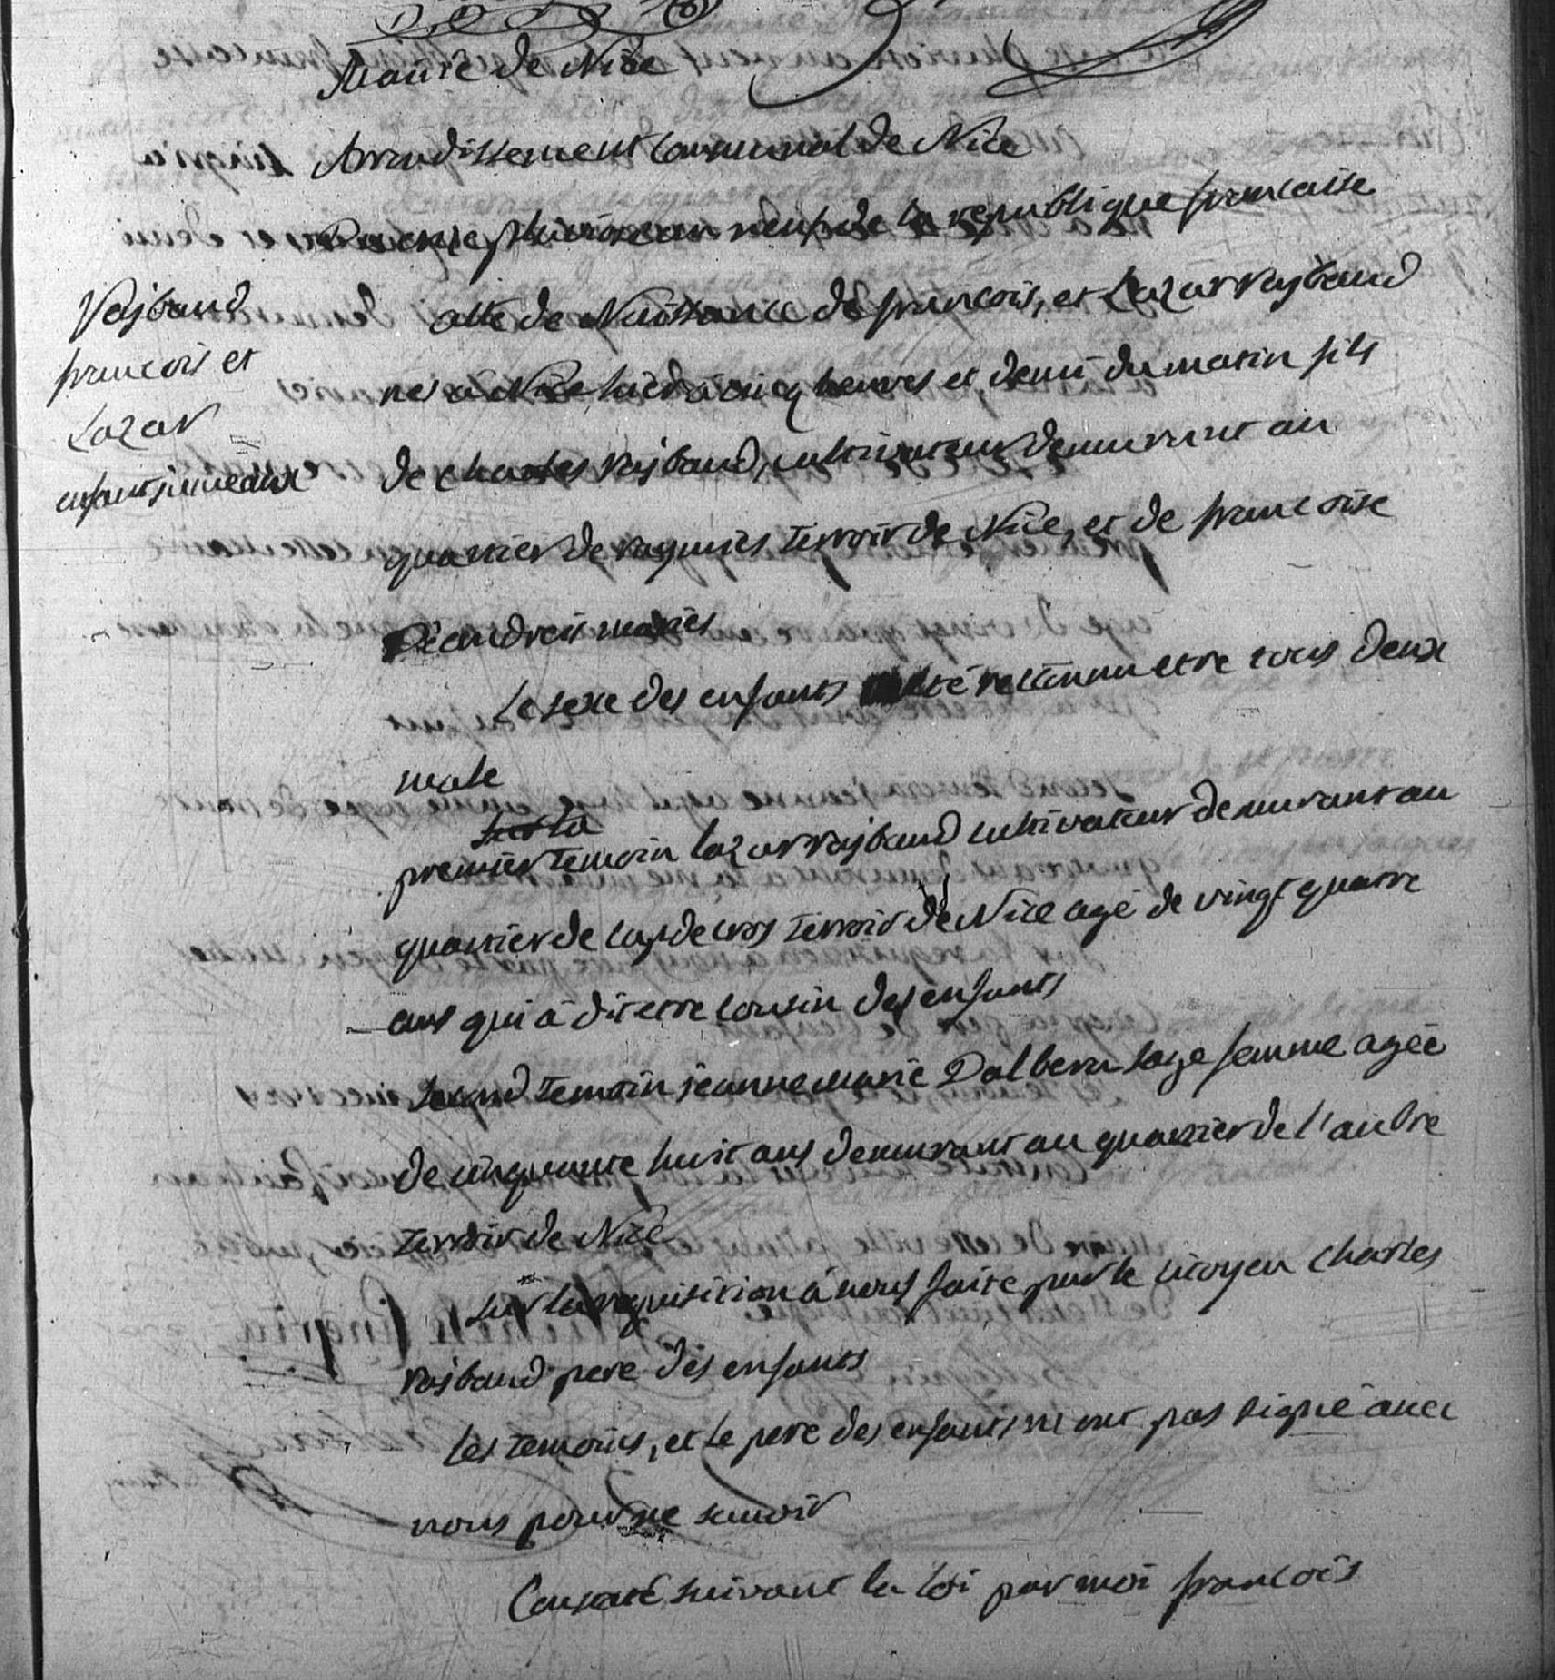 Mairie de Nice
Arrondissement Communal de Nice
Du onze pluviose an neuf de la republique francaise
Rajbaud
francois et
Lazar
enfants jumeaux
acte de Naissance de francois, et Lazar Rajbaud
nes à Nice hier à cinq heures et demi du matin fils
de charles Rajbaud, cultivateur demurant au
quartier de terroir de Nice, et de francoise
mariés
Le sexe des enfants été reconnu etre tous deux
male
sur la
premier temoin lazar rajbaud cultivateur demurant au
quartier de cap de cros terroir de Nice agé de vingt quatre
ans qui à dit etre cousin des enfants
second temoin jeanne marie Dalbera sage femme agée
de cinquante huit ans demurant au quartier de l'aubre
terroir de Nice
sur la requisition à nous faite par le citoyen Charles
rajbaud pere des enfants
Les temoins, et le pere des enfants n'ont pas signé avec
nous pour ne savoir
Constaté suivant la loi par moi francois